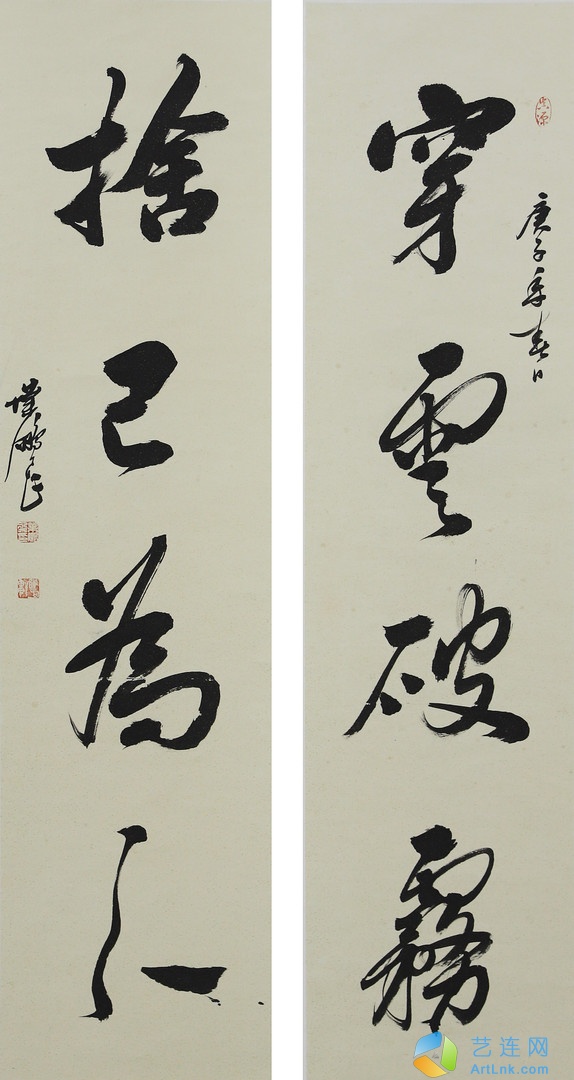 穿雲破霧
庚子年春日
捨己為人
艺连网
ArtLnk.com